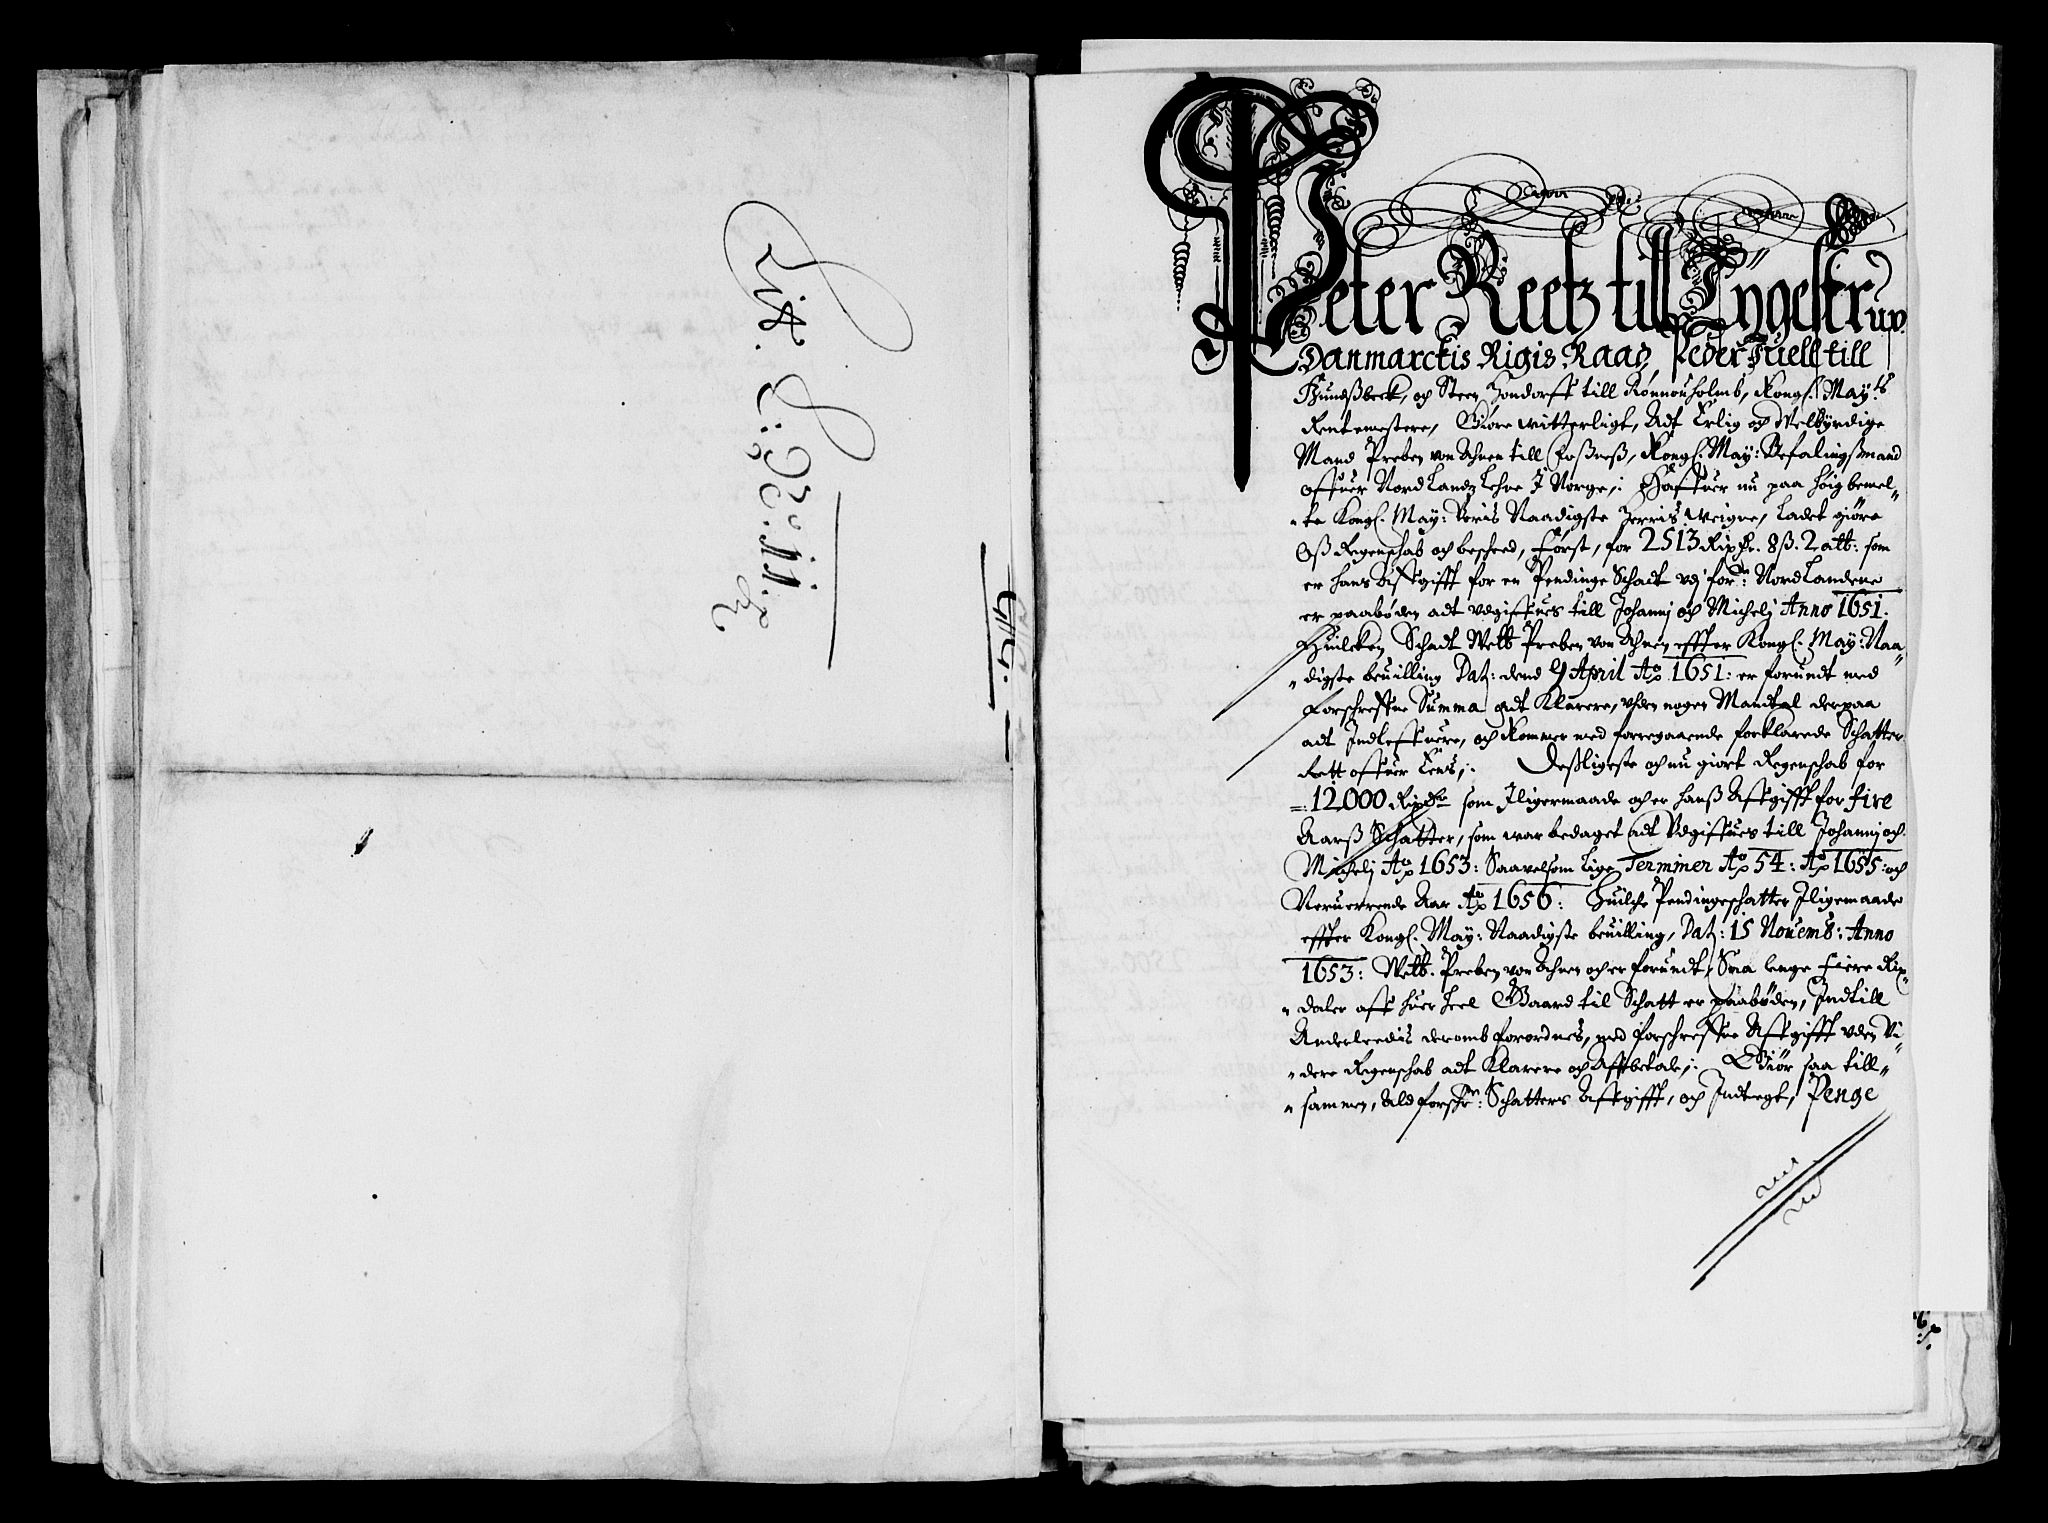 Lit. L: N: 11.
Peter Reetz till Tygelstrup
Danmarckis Rigis Raad, Peder Juell till
Hundßbeck, och Steen Hondorff till Rønnouholmb, Kongl: May:ts
Rentemestere, Giøre witterligt, Adt Erlig och Welbÿrdige
Mand Preben von Ahnen till Foßneß, Kongl: May: Befalingßmand
offuer Nordlandz Lehne J Norge, Haffuer nu paa höigbemel„
„te Kongl: May: Voris Naadigste Herris weigne, Ladet giöre
Oß Regenschab och bescheed, Først, for 2513 Rixdr. 8 ß. 2 alb: som
er hans Affgifft for en Pendinge Schadt vdj forn: Nordlandene
er paabøden adt vdgiffues till Johannj och Michelj Anno 1651:
Huilcken Schadt Welb Preben von Ahnen effter Kongl: May: Naa„
„digste beuilling Dat: dend 9 April Ao 1651: er forundt med
Forschreffne Summa adt Klarere, vden nogen Mandtal derpaa
adt Indleffuere, och Kommer med forregaaende forklarede Schatter
Rett offuer Eens. Desligeste och nu giort Regenschab for
12000 Rixdr som Jligermaade och er hanß Affgifft for fire
Aarß Schatter, som war bedaget adt Vdgiffues till Johannj och
Michelj Ao 1653: Saauelsom Lige Terminer Ao 54: Ao 1655: och
Neruerrende Aar Ao 1656: Huilche Pendingeschatter Jligemaade
effter Kongl: May: Naadigste beuilling, Dat: 15 Nouemb: Anno
1653: Welb. Preben von Ahnen och er forundt, Saa lenge Fiere Rix„
„daler aff huer heel Gaard til Schatt er paabøden, Indtill
Anderleedis deromb forordnes, med forschreffne Affgifft vden Vi„
„dere Regenschab adt Klarere och Affbetale. Giör saa till„
„sammen, Ald forschr: Schatters Affgifft, och Indtegt, Penge